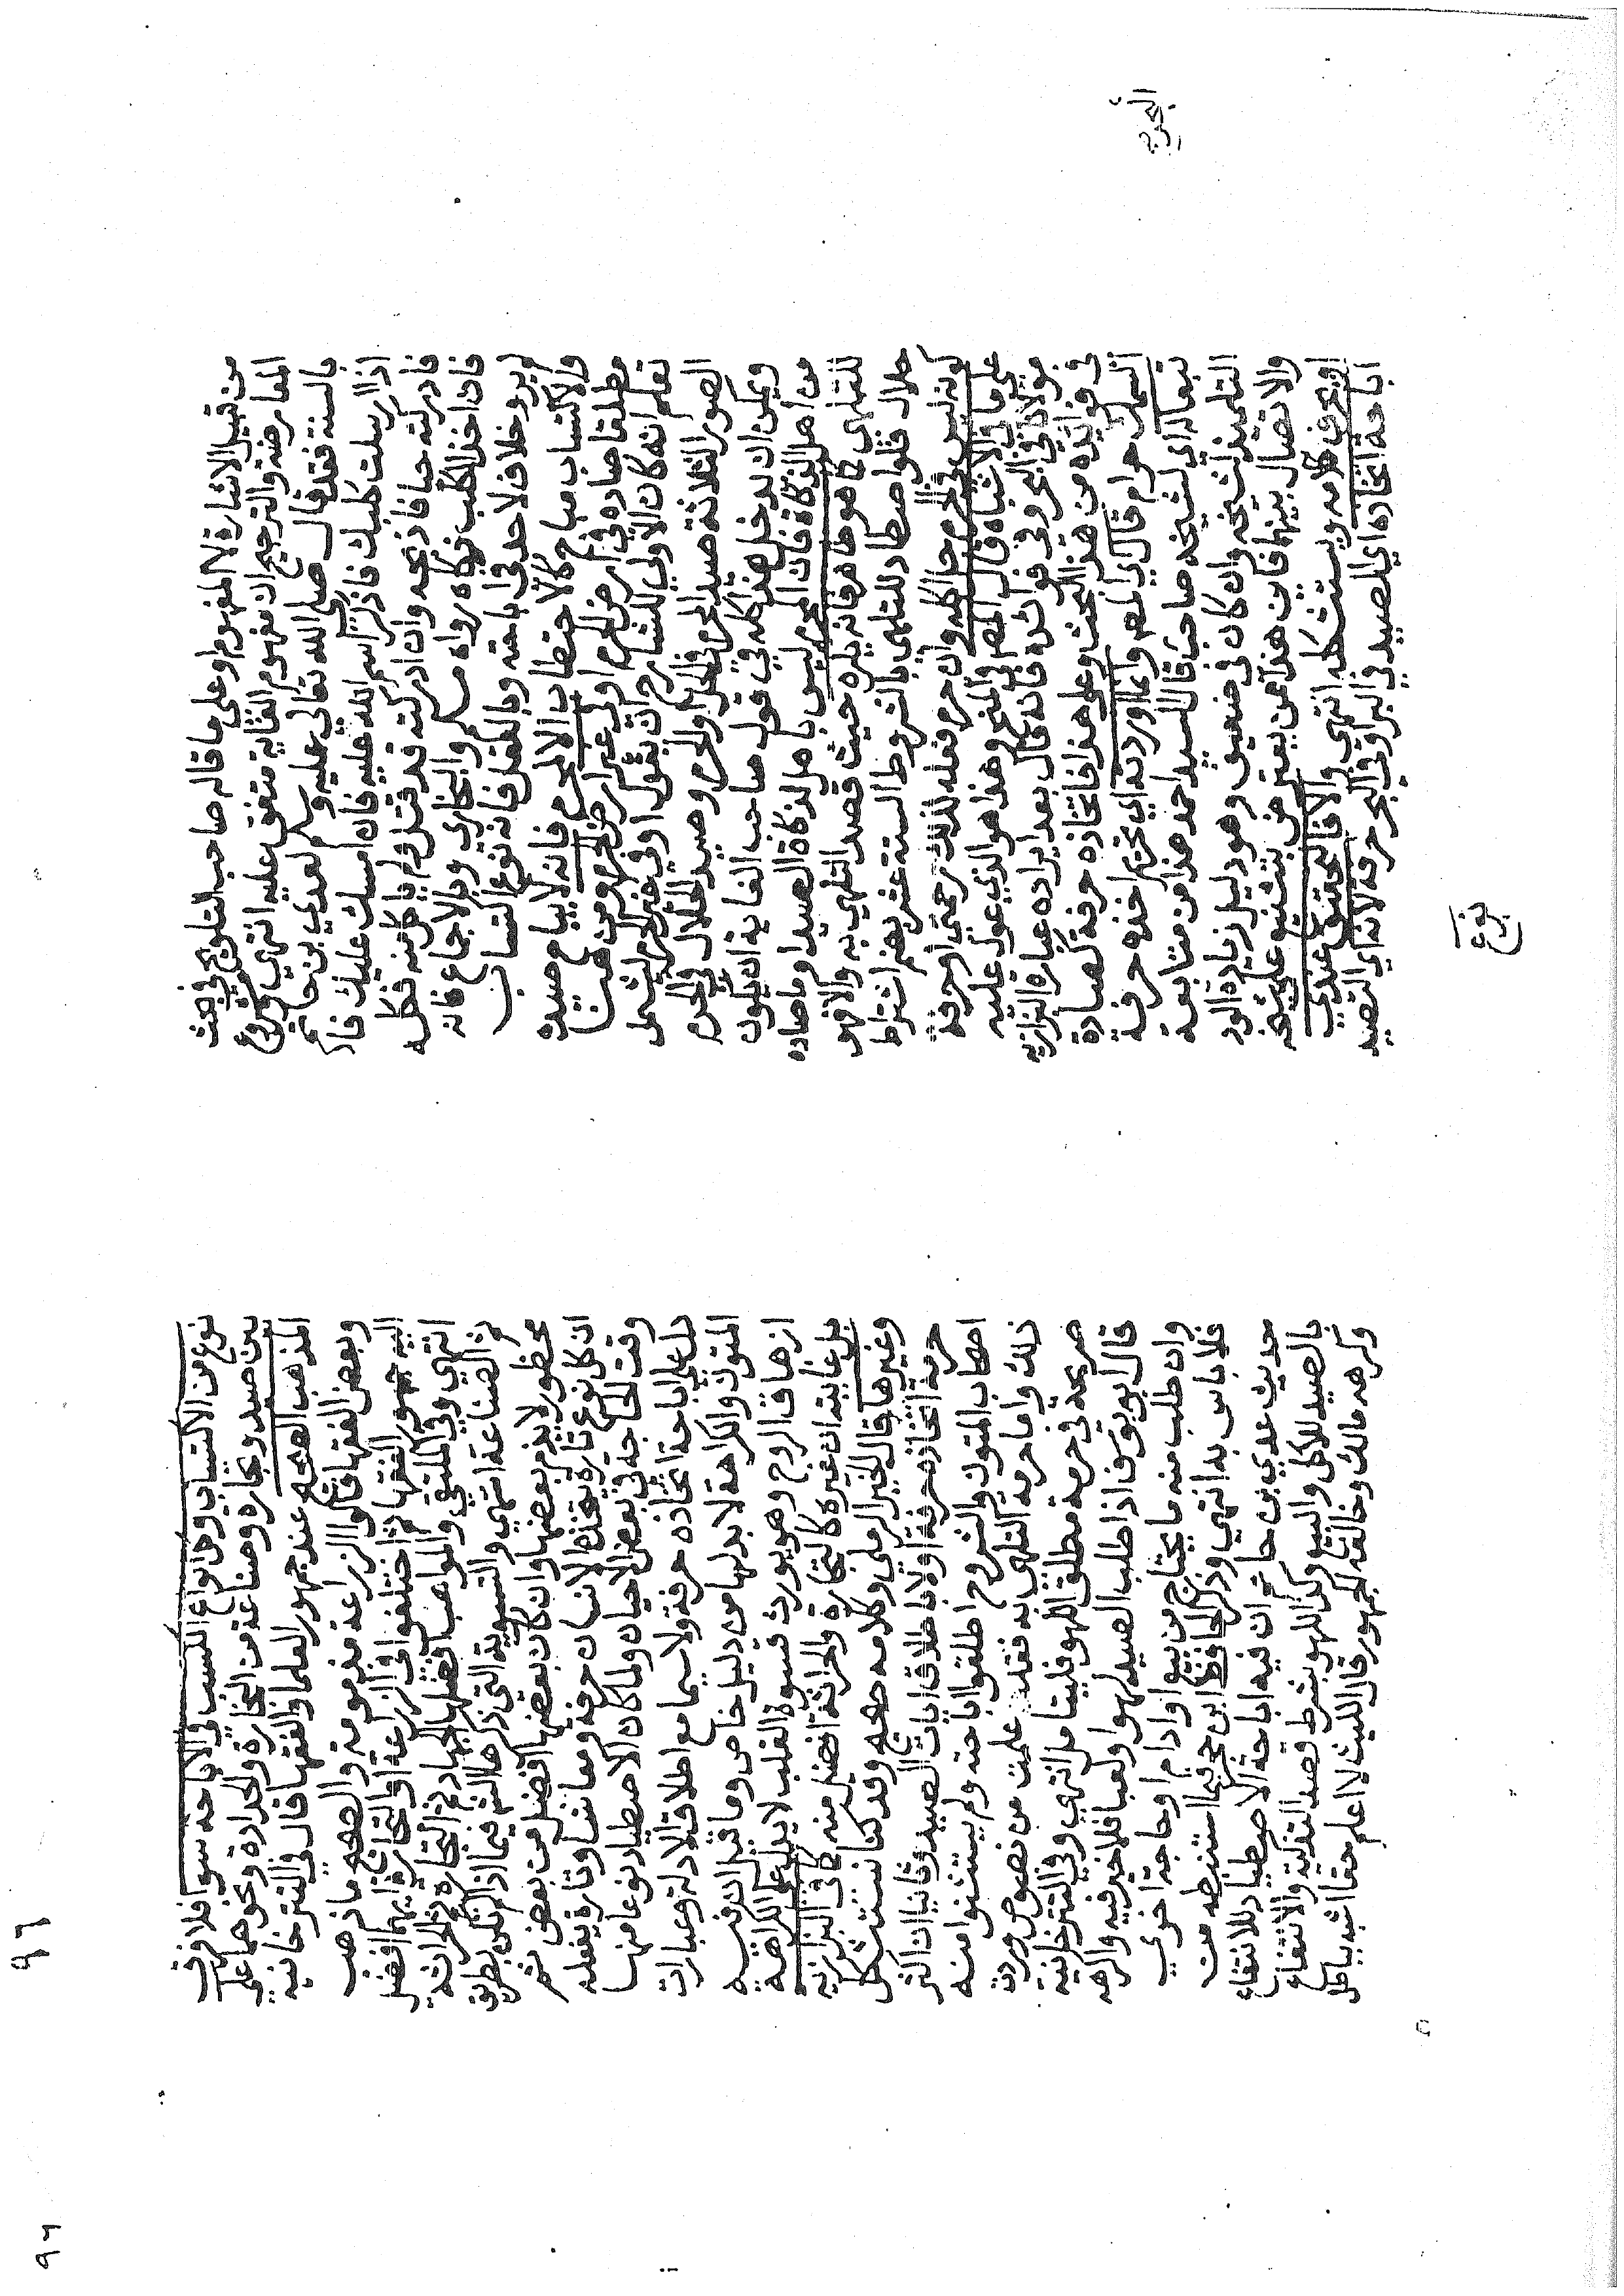 من قبيل الاشارة لا المفهوم او على ما قاله صاحب التلويح في بحث
المعارضة والترجيح ان مفهوم الغاية متفق عليه انتهي ومشروع
بالسنة فقد قال صلى الله تعالى عليه وسلم لعدي بن حاتم
اذا ارسلت كلبك فاذكر اسم الله عليه فان امسك عليك فاد
فادركته حيا فاذبحه وان ادركته قد قتل ولم ياكل منه فكله
فان اخذ الكلب ذكاه رواه مسلم والبخاري وبالاجماع فانه
لم يرو خلاف لاحد في اباحته وبالعقل فانه نوع اكتساب
والاكتساب مباح كالاحتطاب الا لمحرم فانه لا يباح صيده
مطلقا صاده في ارض الحرم او في غير ارض الحرم ومن هنا
تعلم انه كان الاولى للشارح ان يقول او في غير الحرم ليشمل
الصور الثلاثة صيد المحرم في الحل او الحرم وصيد الحلال في الحرم
ويمكن ان يدخل هذا كله في قول صاحب الغاية ان يكون
من اهل الذكاة فان المحرم ليس باهل لذكاة الصيد او ما صاده
للتلهي كما هو ظاهر فانه يكره حيث قصد التلهي به والا فهو
حلال فلو اصطاد للتلهي بالشروط الستة عشر بضم اشتراط
كونه ليس في الحرم حل اكله وان حرم فعله لذلك رحمتي او حرفة
على ما في الاشباه قال المص في المنح وهذا هو الذي عول عليه
مولانا في البحر وفي فوائده فانه قال بعد ايراده عبارة البزازيه
في فوائده من هذا البحث وعلى هذا فاتخاذه حرفة لصيادة
السمك حرام قال اي المص وانما وردته اي تحريم اخذه حرفة
تبعا له اي لشيخه صاحب قال السيد احمد هذا من متابعة
التلميذ لشيخه وان كان في ضعيق وهو دليل زيادة الود
والاتصال بينهما فاين هذا ممن يعترض بتشنيع على شيخه
او يحرف كلامه ويستشكله انتهي والا فالتحقيق عندي
اباحة اتخاذه اي الصيد في البر او في البحر حرفة لانه اي التصيد
نوع
نوع من الاكتساب وكل انواع الكسب في الاباحه سوا فلا فرق
بين صيد وتجارة وصناعة من النجارة والحدادة ونحوهما علي
المذهب الصحيح عند جمهور العلما والفقها قال في التترخانيه
وبعض الفقها قالوا الزراعة مذمومة والصحيح ما ذهب
اليه جمهور الفقها ثم اختلفوا في الزراعة او التجارة ايهما افضل
انتهي وفي الملتقي والمواهب افضلها الجهاد ثم التجارة ثم الحراثة
ثم الصناعة انتهي والتسوية التي ذكرها الش فيما اذا لم تكن بطريق
محظور لا يذم بعضها وان كان بعضها افضل من بعض ثم
ان كل نوع تارة يتخذه الانسان حرفة ومعاشا وتارة يفعله
وقت الحاجة في بعض الاحيان ولما كان الاصطياد نوعا منها
دل علي اباحة اتخاذه حرفة ولا سيما مع اطلاق الادلة وعبارات
المتون والكراهة لا بد لها من دليل خاص وما قيل ان فيه
ازهاق الروح وهو يورث قسوة القلب لا يدل علي الكراهة
بل غايته ان غيره كالتجارة والحراثة افضل منه كما في البزازيه
وغيرها وقال الخير الرملي وكلامه صحيح وقد كنا نستشكل
حرمة اتخاذه حرفة اولا باطلاق ايات الصيد وثانيا ان اكثر
اصحاب المتون والشروح اطلقوا اباحته ولم يستثنوا منه
ذلك واما حرمة التلهي به فقد علمت من نصوص وردت
صريحة في حرمة مطلق اللهو فليتامل انتهي وفي التترخانية
قال ابو يوسف اذا طلب الصيد لهوا ولعبا فلا خير فيه واكرهه
وان طلب منه ما يحتاج من بيع او ادام او حاجة اخري
فلا باس به انتهي وذكر الحافظ ابن حجر فيما استنبطه من
حديث عدي بن حاتم ان فيه اباحة الاصطياد للانتفاع
بالصيد للاكل والبيع وكذا اللهو بشرط قصد التذكية والانتفاع
وكرهه مالك وخالفه الجمهور قال الليث لا اعلم حقا اشبه بباطل
٩٦
٩٦